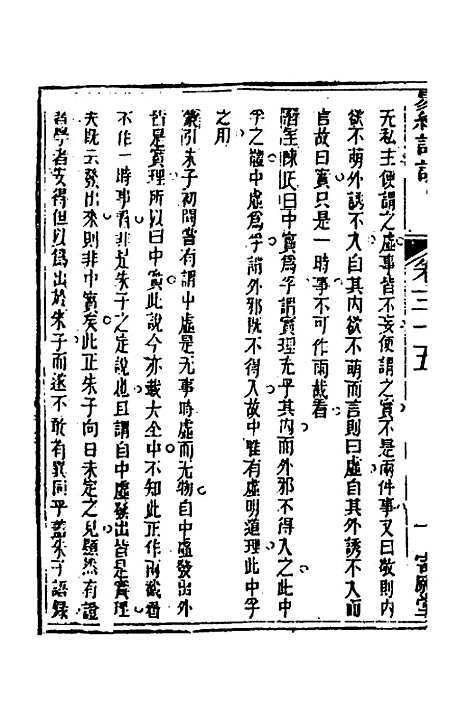 易經詳說
卷三十五
一
寄願堂
无私主便謂之虛事皆不妄便謂之實不是兩件事又曰敬則內
欲不萌外誘不入自其內欲不萌而言則曰虛自其外誘不入而
言故曰實只是一時事不可作兩截看
潛室陳氏曰中實為孚謂實理充乎其內而外邪不得入之此中
孚之體中虛為孚謂外邪既不得入故中唯有虛明道理此中孚
之用
蒙引朱子初間嘗有謂中虛是无事時虛而无物自中虛發出外
皆是實理所以曰中實此說今亦載大全中不知此正作兩截看
不作一時事看非是朱子之定說也且謂自中虛發出皆是實理
夫既云發出來則非中實矣此正朱子向日未定之見顯然有證
者學者安得但以為出於朱子而遂不敢有異同乎蓋朱子語錄